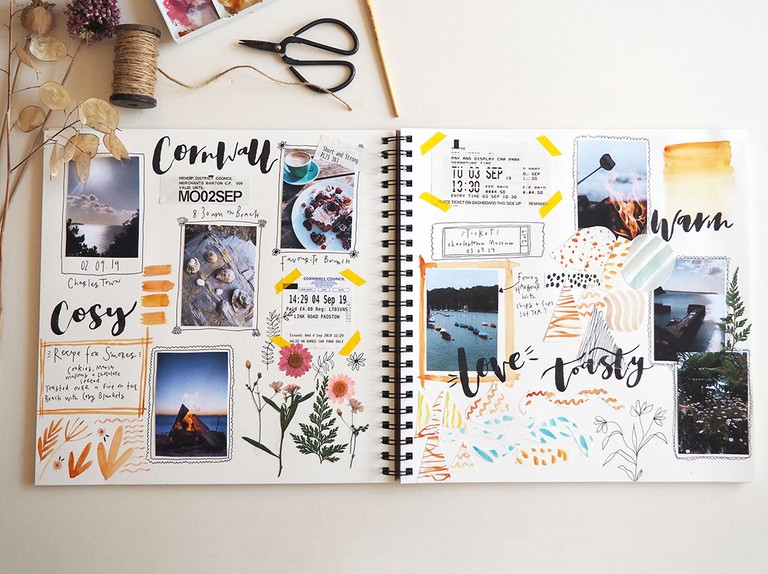 Cornwall
MENDIP DISTRICT COUNCIL
MERCHANTS BARTON C.P. 009
VALID UNTIL
MO02SEP
Short and Strong
8:30am on Beach
02 09 19
Charles Town
Favourite Brunch
Cosy
CORNWALL COUNCIL
14:29 04 Sep 19
Paid £4.00 Reg: LT03VNS
LINK ROAD PADSTOW
Issued: Wed 4 Sep 2019 11:29
VALID ON NAMED CAR PARK ONLY
Recipe for Smores!
Cookies, Marsh
mallows + chocolate
spread
Toasted over a fire on the
Beach with Cosy Blankets
PAY AND DISPLAY CAR PARK
DEPARTURE TIME
TU 03 SEP 19
13:30
ENTRY TIME 03 SEP 10:30
PLACE TICKET ON DASHBOARD THIS SIDE UP
REMINDER
Warm
Tickets
Charlestown Museum
03.09.19
with
chips + cups
of tea
Love
toasty